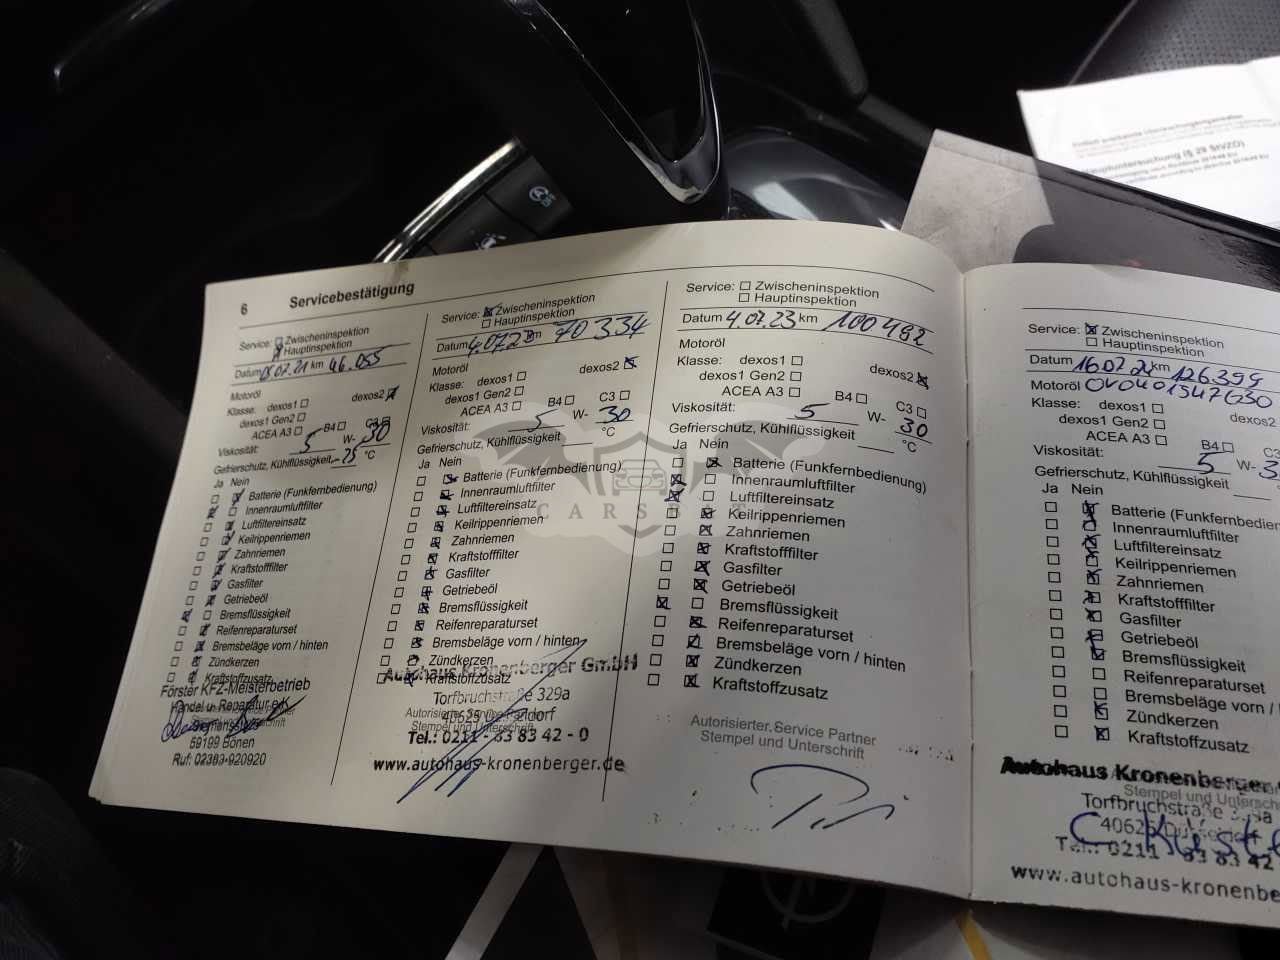 6 Servicebestätigung
Service: Zwischeninspektion
Hauptinspektion
Datum 07.21 km 46.055
Motoröl
Klasse: dexos1 dexos2
dexos1 Gen2
ACEA A3 B4 C3
Viskosität: 5 W- 30
Gefrierschutz, Kühlflüssigkeit -25 °C
Ja Nein
Batterie (Funkfernbedienung)
Innenraumluftfilter
Luftfiltereinsatz
Keilrippenriemen
Zahnriemen
Kraftstofffilter
Gasfilter
Getriebeöl
Bremsflüssigkeit
Reifenreparaturset
Bremsbeläge vorn / hinten
Zündkerzen
Kraftstoffzusatz
Förster KFZ-Meisterbetrieb
Handel u. Reparatur e.K.
59199 Bönen
Ruf: 02383-920920
Service: Zwischeninspektion
Hauptinspektion
Datum 4.07.23 km 70334
Motoröl
Klasse: dexos1 dexos2
dexos1 Gen2
ACEA A3 B4 C3
Viskosität: 5 W- 30
Gefrierschutz, Kühlflüssigkeit °C
Ja Nein
Batterie (Funkfernbedienung)
Innenraumluftfilter
Luftfiltereinsatz
Keilrippenriemen
Zahnriemen
Kraftstofffilter
Gasfilter
Getriebeöl
Bremsflüssigkeit
Reifenreparaturset
Bremsbeläge vorn / hinten
Zündkerzen
Kraftstoffzusatz
Autohaus Kronenberger GmbH
Torfbruchstraße 329a
Autorisierter Service
40625
Stempel und Unterschrift
Tel.: 0211 - 83 83 42 - 0
www.autohaus-kronenberger.de
Service: Zwischeninspektion
Hauptinspektion
Datum 4.07.23 km 100492
Motoröl
Klasse: dexos1 dexos2
dexos1 Gen2
ACEA A3 B4 C3
Viskosität: 5 W- 30
Gefrierschutz, Kühlflüssigkeit °C
Ja Nein
Batterie (Funkfernbedienung)
Innenraumluftfilter
Luftfiltereinsatz
Keilrippenriemen
Zahnriemen
Kraftstofffilter
Gasfilter
Getriebeöl
Bremsflüssigkeit
Reifenreparaturset
Bremsbeläge vorn / hinten
Zündkerzen
Kraftstoffzusatz
Autorisierter Service Partner
Stempel und Unterschrift
Service: Zwischeninspektion
Hauptinspektion
Datum 16.07.24 km 126399
Motoröl
Klasse: dexos1
dexos1 Gen2
ACEA A3 B4 C3
Viskosität: 5 W-
Gefrierschutz, Kühlflüssigkeit
Ja Nein
Batterie (Funkfernbedien
Innenraumluftfilter
Luftfiltereinsatz
Keilrippenriemen
Zahnriemen
Kraftstofffilter
Gasfilter
Getriebeöl
Bremsflüssigkeit
Reifenreparaturset
Bremsbeläge vorn /
Zündkerzen
Kraftstoffzusatz
Autohaus Kronenberger
Stempel und Unterschr
Torfbruchstraße 329a
40625
Tel.: 0211 - 83 83 42
www.autohaus-kronenberge
Hauptuntersuchung (§ 29 StVZO)
CARSBIT